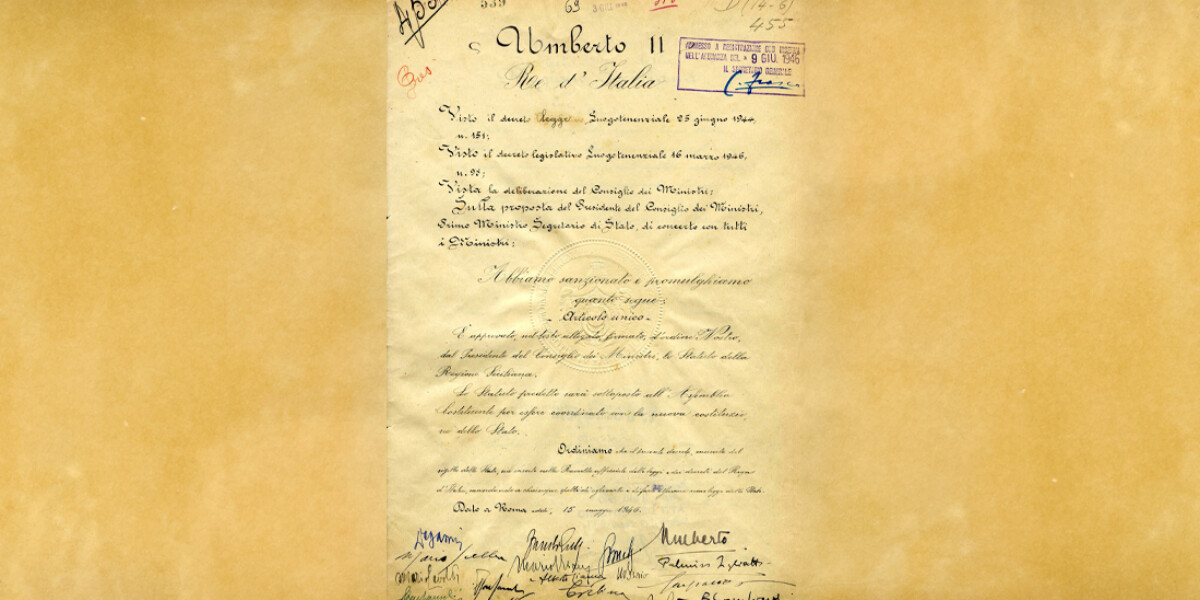 455
69
D (14-6)
455
Umberto II
Re d'Italia
PERMESSO A REGISTRAZIONE CON RISERVA
NELL'ADUNANZA DEL 9 GIU. 1946
IL SEGRETARIO GENERALE
Visto il decreto legge Luogotenenziale 25 giugno 1944,
n. 151;
Visto il decreto legislativo Luogotenenziale 16 marzo 1946,
n. 98;
Vista la deliberazione del Consiglio dei Ministri;
Sulla proposta del Presidente del Consiglio dei Ministri,
Primo Ministro Segretario di Stato, di concerto con tutti
i Ministri;
Abbiamo sanzionato e promulghiamo
quanto segue:
- Articolo unico -
È approvato, nel testo allegato, firmato, d'ordine Nostro,
dal Presidente del Consiglio dei Ministri, lo Statuto della
Regione Siciliana.
Lo Statuto predetto sarà sottoposto all'Assemblea
Costituente per essere coordinato con la nuova costituzio
ne dello Stato.
Ordiniamo che il presente decreto, munito del
sigillo dello Stato, sia inserto nella Raccolta ufficiale delle leggi e dei decreti del Regno
d'Italia, mandando a chiunque spetti di osservarlo e di farlo osservare come legge dello Stato.
Dato a Roma addì, 15 maggio 1946.
Umberto